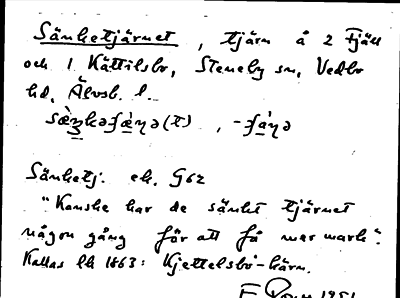 Sänketjärnet, tjärn å 2 Fjäll
och 1 Kättilsbo, Steneby sn, Vedbo
hd, Älvsb. l.
Sänketj. ek. G62
"Kanske har de sänkt tjärnet
någon gång för att få mer mark".
Kallas lk 1863: Kjettelsbo-kärn.
1951